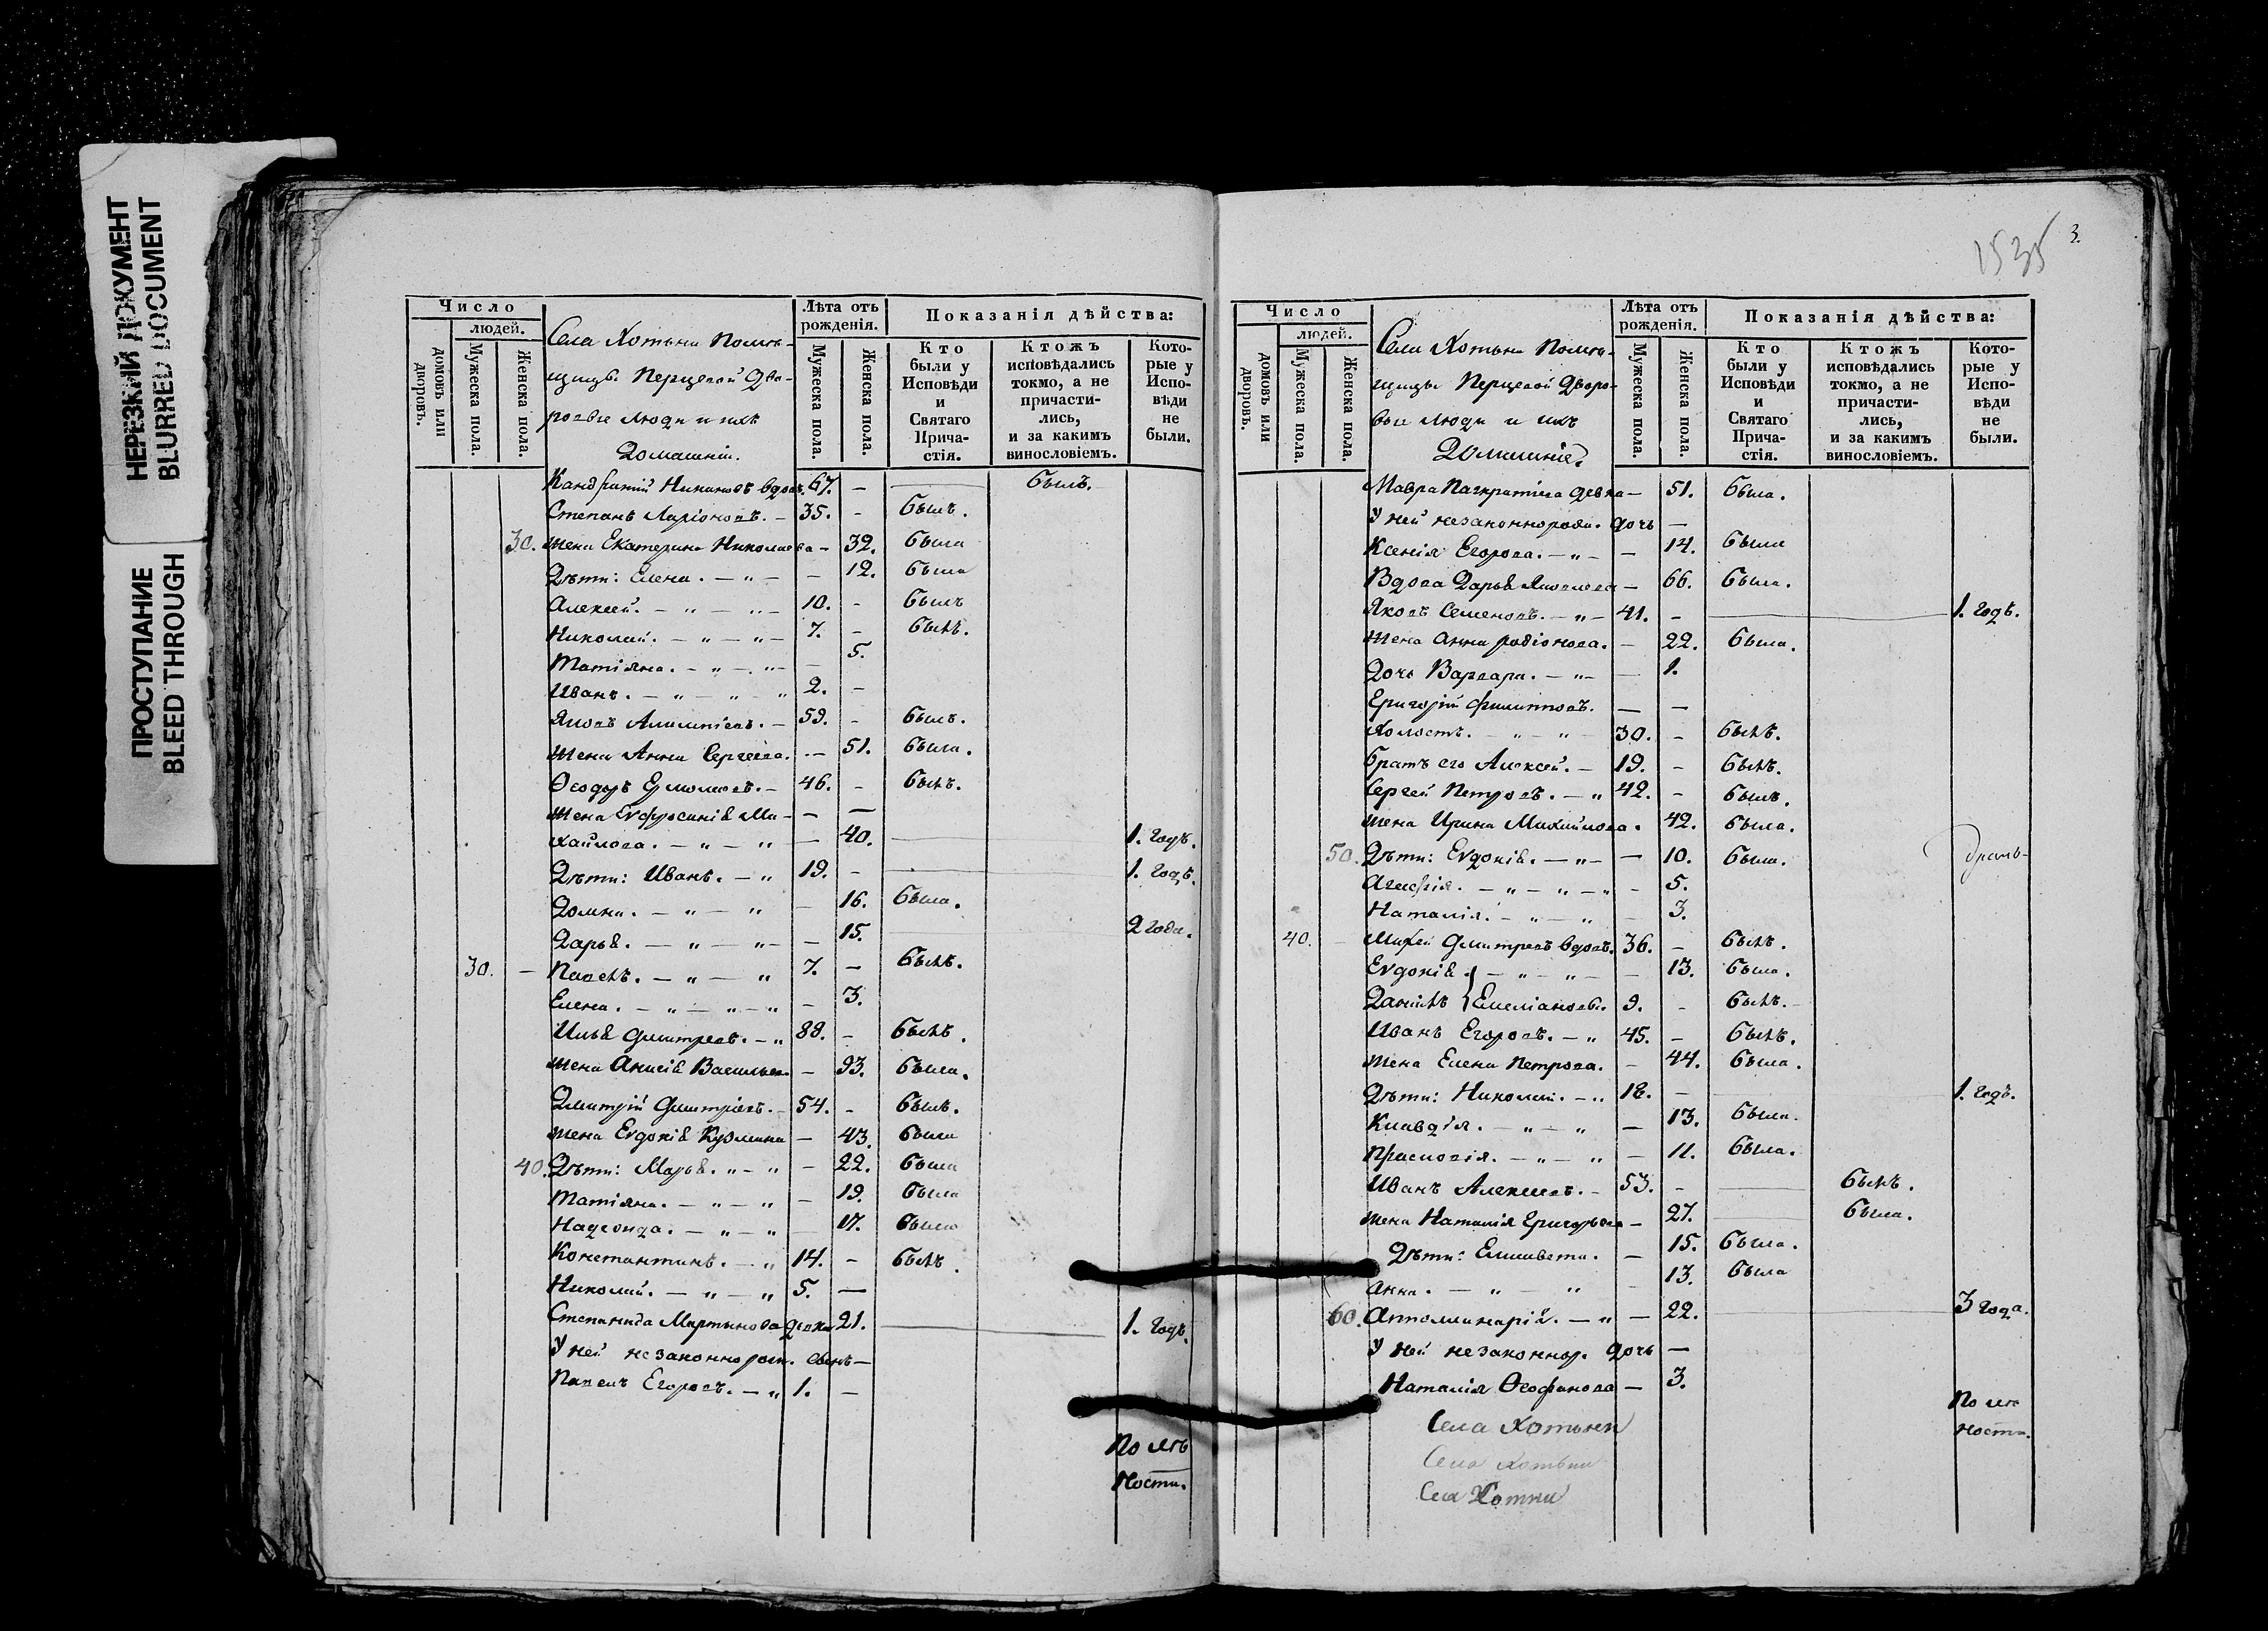 НЕРЕЗКИЙ ДОКУМЕНТ
BLURRED DOCUMENT
ПРОСТУПАНИЕ
BLEED THROUGH
Число
людей.
домовъ или дворовъ.
Мужеска пола.
Женска пола.
Села Хотьни Помѣ-
щицы Перцевой Дво-
ровые люди и ихъ
Домашніи.
Лѣта отъ рожденія.
Мужеска пола.
Женска пола.
Показанія дѣйства:
Кто были у Исповѣди и Святаго Прича-стія.
Ктожъ исповѣдались токмо, а не причасти-лись, и за какимъ винословіемъ.
Кото-рые у Испо-вѣди не были.
Кандратій Никановъ вдов. 67. — — былъ.
Степанъ Ларіоновъ. — 35. - былъ.
30. жена Екатерина Николаева — 32. была
Дѣти: Елена. — „ — — 12. была
Алексей. — „ — „ — 10. - былъ
Николай. — „ — „ — 7. — былъ.
Татіяна. — „ — „ — — 5.
Иванъ. — „ — „ — „ 2. —
Яковъ — 59. - былъ.
жена Анна Сергеева. — 51. была.
Ѳеодоръ Ермолаевъ. — 46. - былъ.
жена Евфросинія Ми- — —
хайлова. — „ — „ — 40. — 1. годъ.
Дѣти: Иванъ. — „ 19. - — 1. годъ.
Домна. — „ — „ — 16. была.
Дарья. — „ — „ — — 15. 2 года.
30. — Павелъ. — „ — „ 7. — былъ.
Елена. — „ — „ — „ — 3.
Илья Дмитревъ. — „ 88. - былъ.
жена Анисія Васильева — 93. была.
Дмитрій Дмитріевъ. — 54. - былъ.
жена Евдокія Кузмина — 43. была
40. Дѣти: Марья. „ — „ — 22. была
Татіяна. — „ — „ — 19. была
Надежда. — „ — „ 17. была
Константинъ. — „ 14. — былъ.
Николай. — „ — „ 5. —
Степанида Мартынова девка 21. — 1. годъ.
У ней незаконнорож. сынъ —
Павелъ Егоровъ. — „ 1. —
По лѣ
ности.
1535
3.
Число
людей.
домовъ или дворовъ.
Мужеска пола.
Женска пола.
Села Хотьни Помѣ-
щицы Перцевой Дворо-
вые люди и ихъ
Домашніе.
Лѣта отъ рожденія.
Мужеска пола.
Женска пола.
Показанія дѣйства:
Кто были у Исповѣди и Святаго Прича-стія.
Ктожъ исповѣдались токмо, а не причасти-лись, и за какимъ винословіемъ.
Кото-рые у Испо-вѣди не были.
Мавра Панкратіева девка — 51. была.
У ней незаконнорожд. дочь —
Ксенія Егорова. — „ — — 14. была
Вдова Дарья — 66. была.
Яковъ Семеновъ. — „ — 41. - — 1. годъ.
жена Анна Родіонова. — 22. была.
Дочь Варвара. — „ — — 1.
Григорій Филипповъ. — —
Холостъ. — „ — „ — 30. - былъ.
братъ его Алексей. — 19. - былъ.
Сергей Петровъ. — „ 42. - былъ.
жена Ирина Михайлова. 42. была.
50. Дѣти: Евдокія. — „ — — 10. была.
Агафія. — „ — „ — „ — 5.
Наталія. — „ — „ — 3.
40. — Михей Дмитревъ вдовъ. 36. - былъ.
Евдокія — „ — „ — — 13. была.
Даніилъ } Емеліановы. 9. - былъ.
Иванъ Егоровъ. — „ 45. — былъ.
жена Елена Петрова. — 44. была.
Дѣти: Николай. — „ 18. — 1. годъ.
Клавдія. — „ — „ — 13. была.
Прасковія. — „ — „ — 11. была.
Иванъ Алексеевъ. — 53. - — былъ.
жена Наталія Григорьева — 27. — была.
Дѣти: Елисавета. — 15. была.
Анна. — „ — „ — 13. была
60. Апполинарія. — „ — 22. — 3 года.
У ней незаконнор. дочь —
Наталія Ѳеофанова — 3.
По лѣ
ности.
Села Хотьни
Села Хотьни
Села Хотни